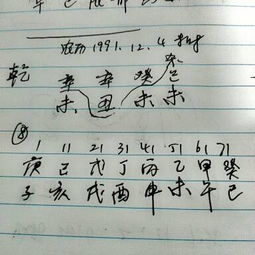 1991.12.4
乾 辛 辛 癸 己
未 丑 未 未
⑧ 1 11 21 31 41 51 61 71
庚 己 戊 丁 丙 乙 甲 癸
子 亥 戌 酉 申 未 午 巳